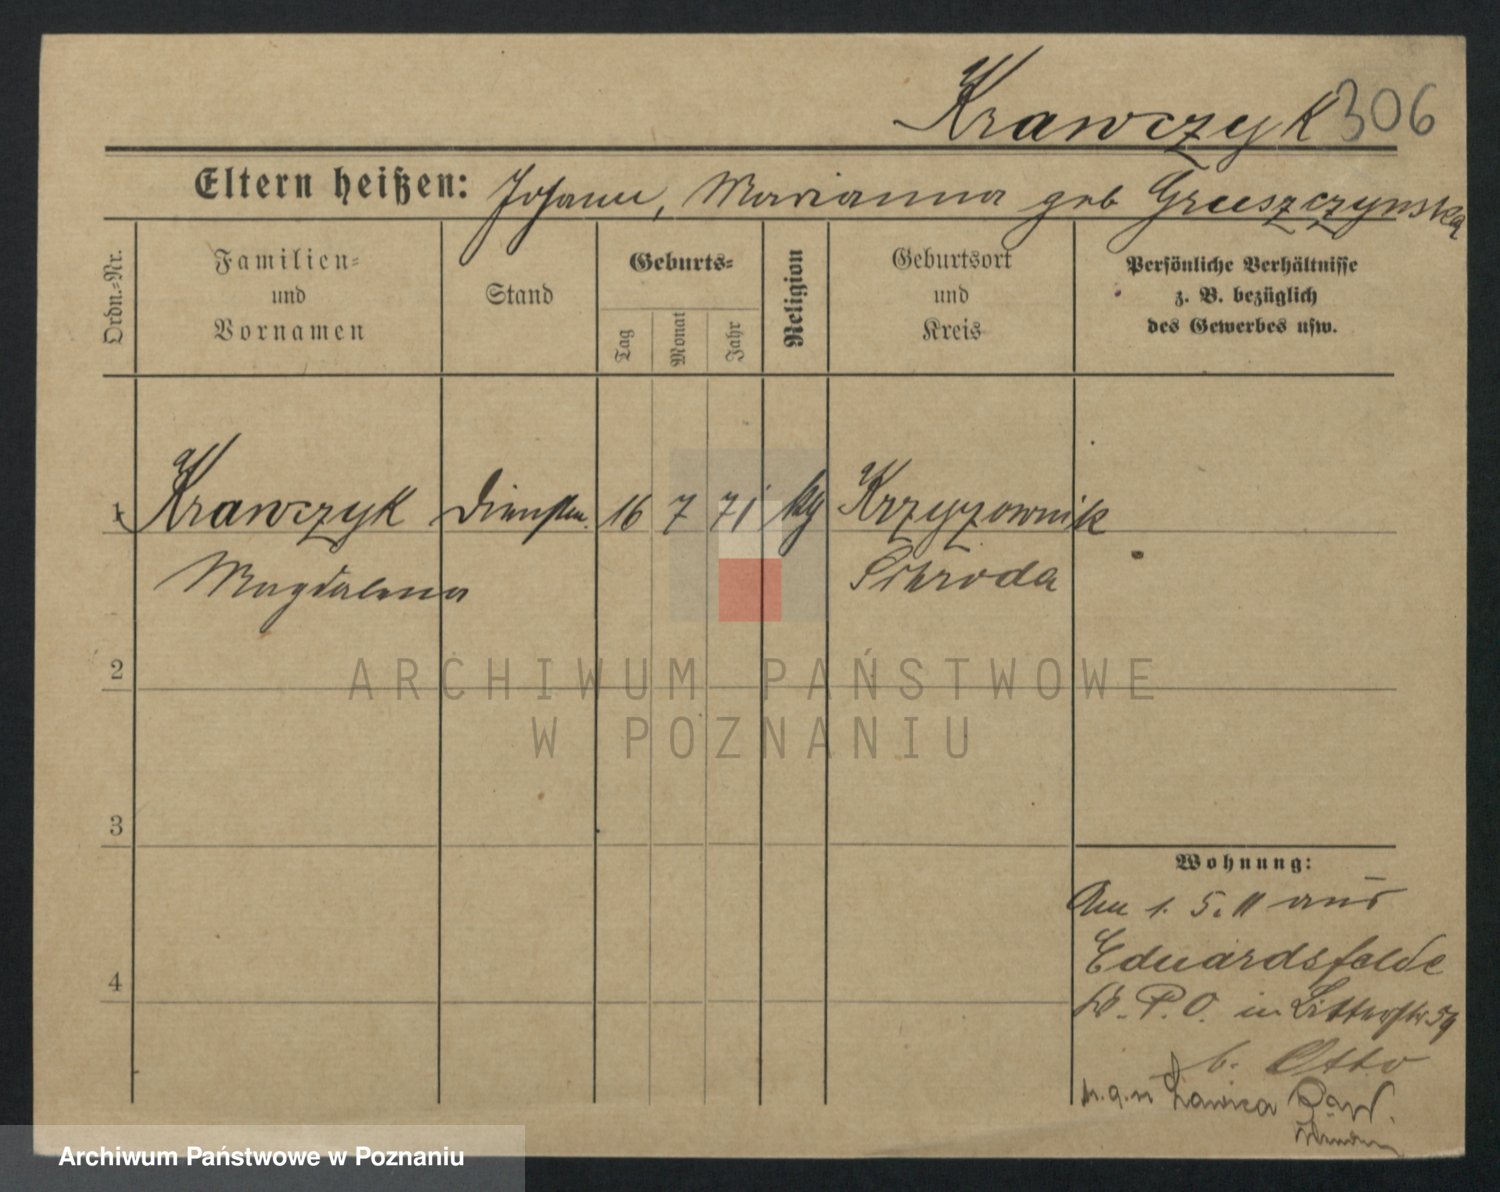 Krawczyk 306
Eltern heißen: Johann, Marianna geb Gruszczynska
Ordn.-Nr.
Familien-
und
Vornamen
Stand
Geburts-
Tag
Monat
Jahr
Religion
Geburtsort
und
Kreis
Persönliche Verhältnisse
z. B. bezüglich
des Gewerbes usw.
1 Krawczyk 16 7 71 kg Krzyzownik
Magdalena Schroda
2
3
4
ARCHIWUM PAŃSTWOWE
W POZNANIU
Wohnung:
Am 1. 5. 11 aus
Eduardsfelde
Kr. P. O. in
b. Otto
Lawica
Archiwum Państwowe w Poznaniu